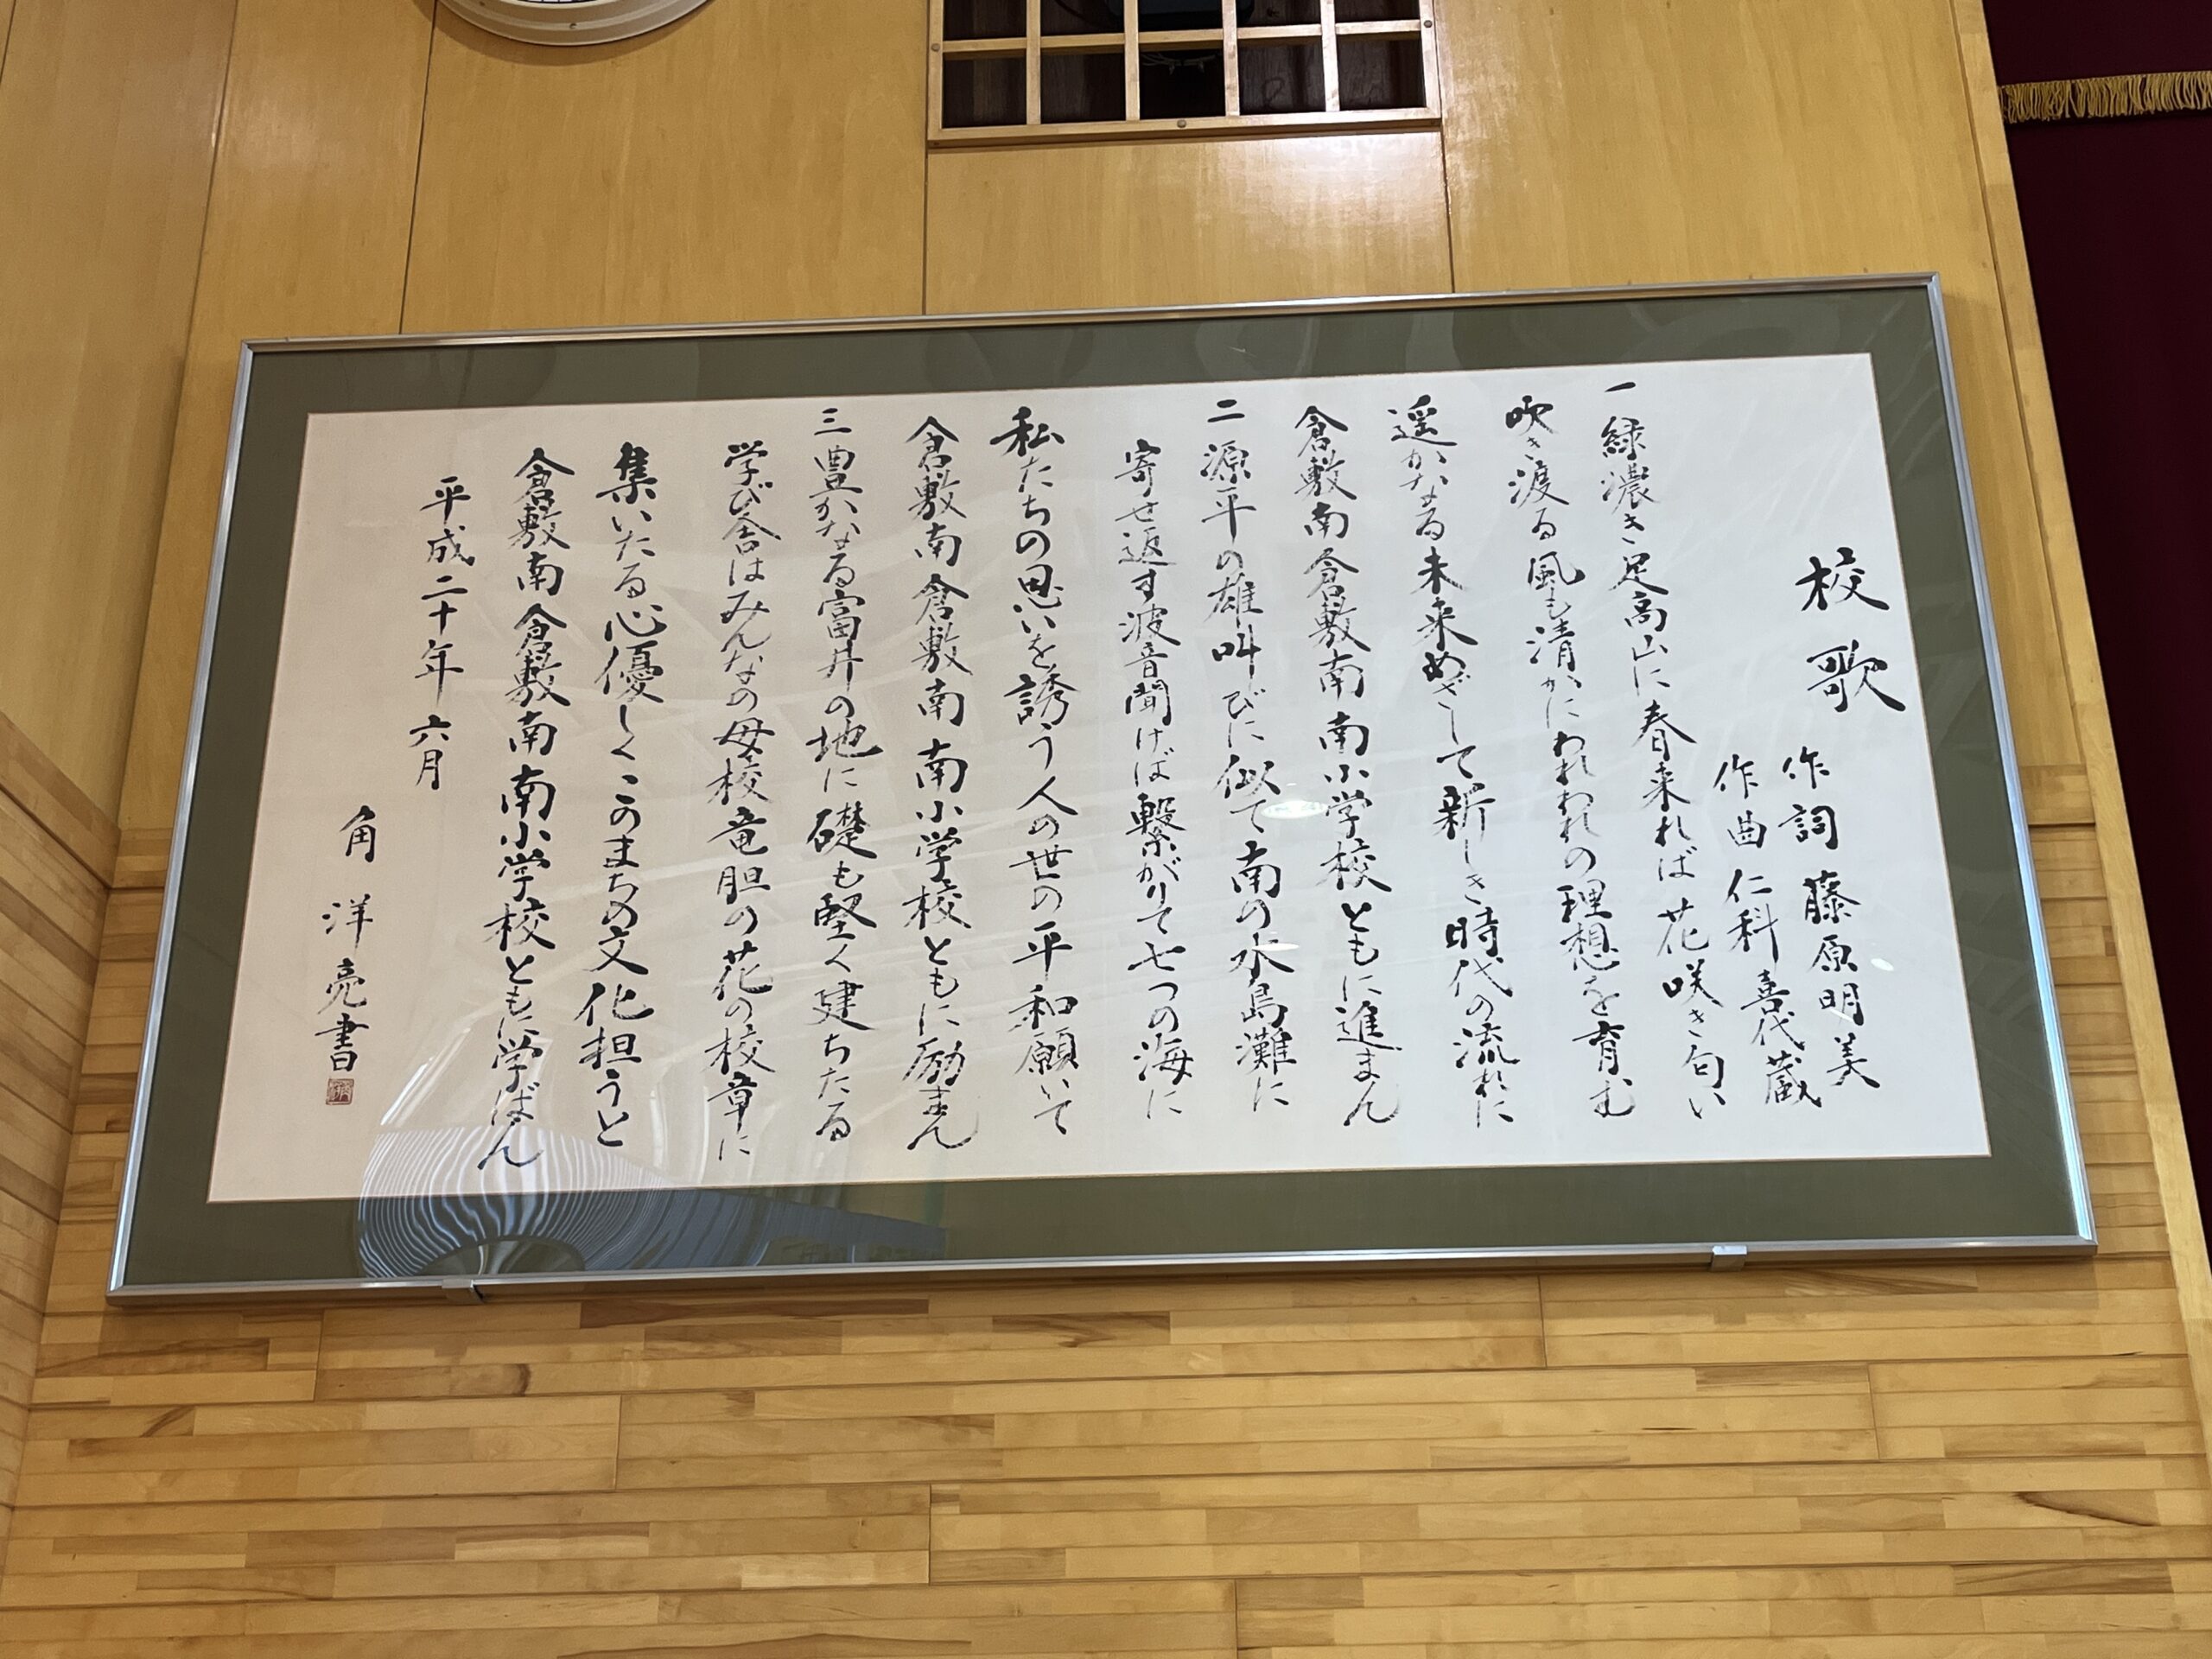 校歌
作詞 藤原明美
作曲 仁科喜代蔵
一 緑濃き足高山に春来れば花咲き匂い
吹き渡る風も清かにわれわれの理想を育む
遥かなる未来めざして新しき時代の流れに
倉敷南倉敷南南小学校ともに進まん
二 源平の雄叫びに似て南の水島灘に
寄せ返す波音聞けば繋がりて七つの海に
私たちの思いを誘う人の世の平和願いて
倉敷南倉敷南南小学校ともに励まん
三 豊かなる富井の地に礎も堅く建ちたる
学び舎はみんなの母校竜胆の花の校章に
集いたる心優しくこのまちの文化担うと
倉敷南倉敷南南小学校ともに学ばん
平成二十年六月
角洋亮書